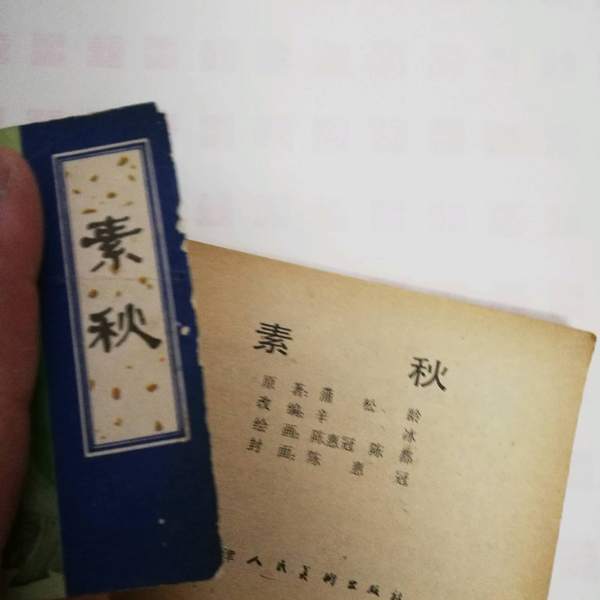 素秋
素秋
原著：蒲松龄
改编：辛冰
绘画：陈惠冠 陈都
封画：陈惠冠
津人民美術出版社